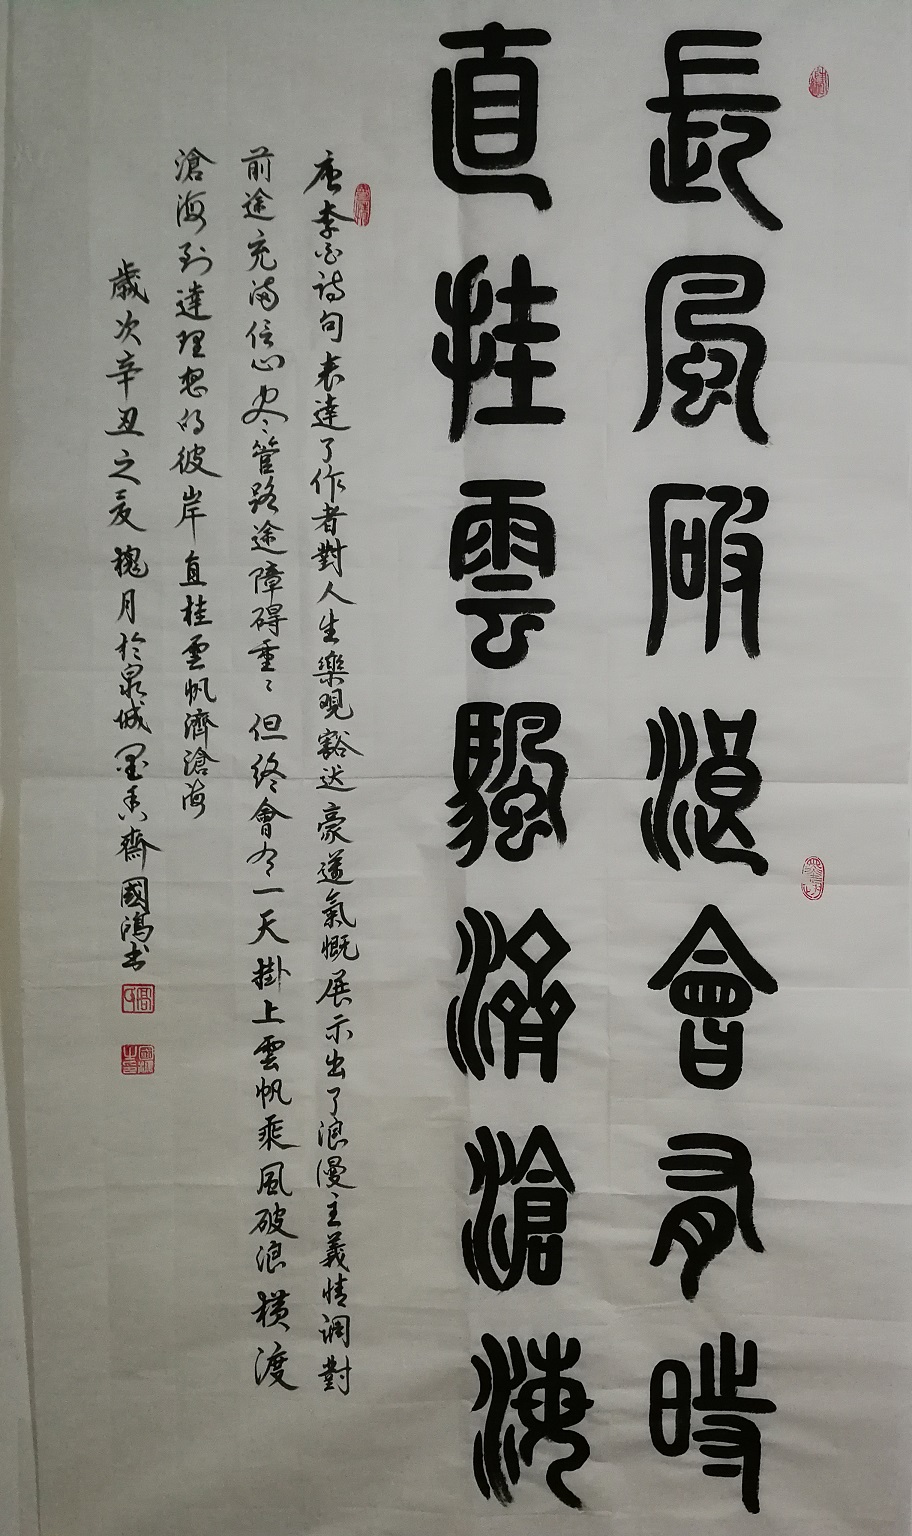 長風破浪會有時
直挂雲颿濟滄海
唐李白诗句表達了作者對人生樂观豁达豪邁氣慨展示出了浪漫主義情调對
前途充满信心尽管路途障碍重重但終會有一天掛上雲帆乘風破浪橫渡
滄海到達理想的彼岸直挂雲帆濟滄海
歲次辛丑之夏槐月於泉城墨香齋國鴻书